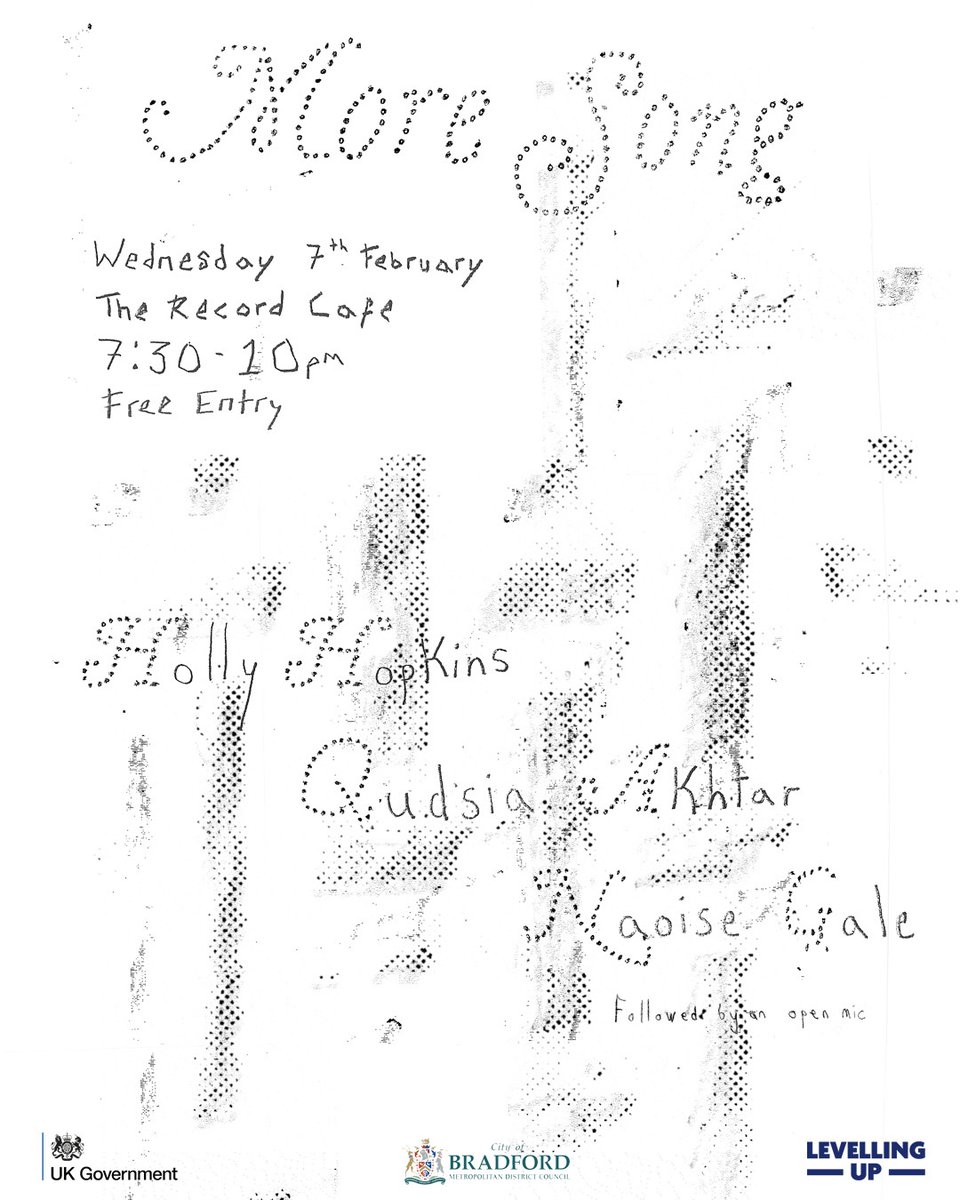 More Song
Wednesday 7th February
The Record Cafe
7:30 - 10pm
Free Entry
Holly Hopkins
Qudsia Akhtar
Naoise Gale
Followed by an open mic
UK Government
City of
BRADFORD
METROPOLITAN DISTRICT COUNCIL
LEVELLING
UP